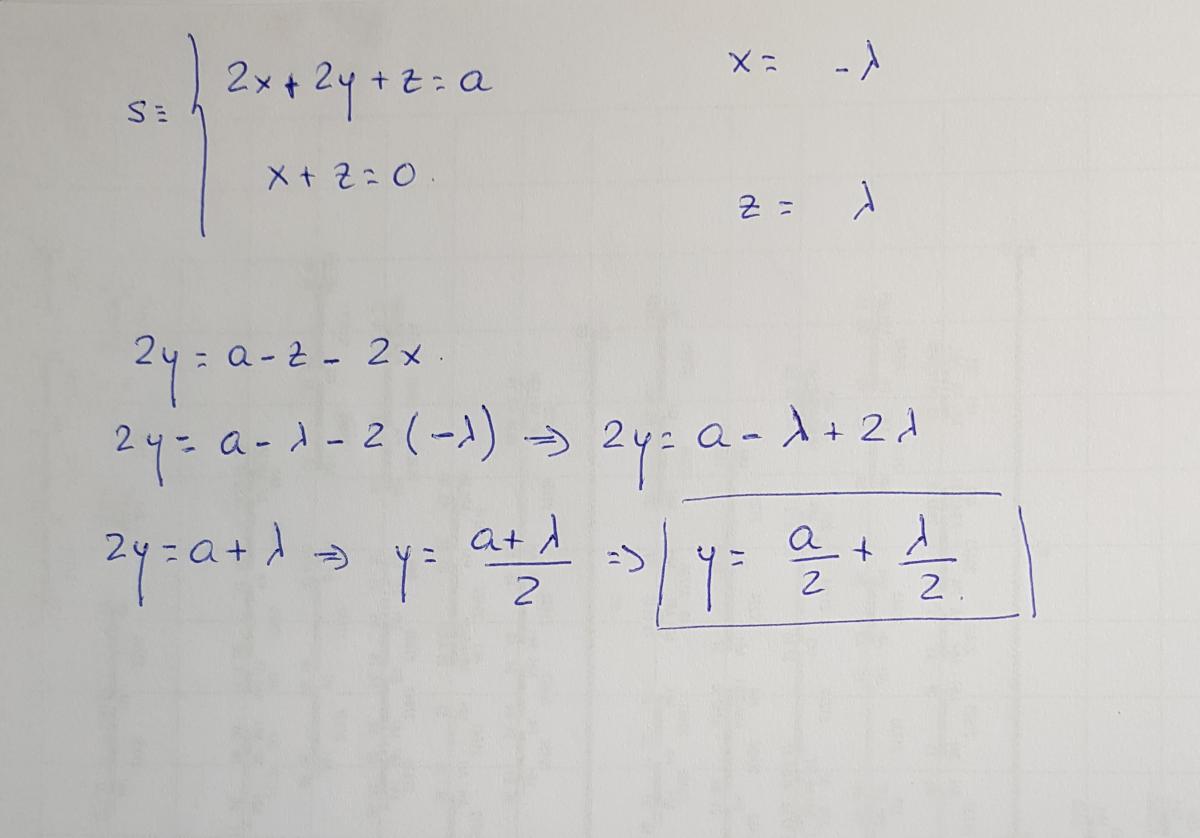 S ≡ { 2x + 2y + z = a
x + z = 0.
x = -λ
z = λ
2y = a - z - 2x.
2y = a - λ - 2(-λ) ⇒ 2y = a - λ + 2λ
2y = a + λ ⇒ y = (a + λ)/2 ⇒ y = a/2 + λ/2.